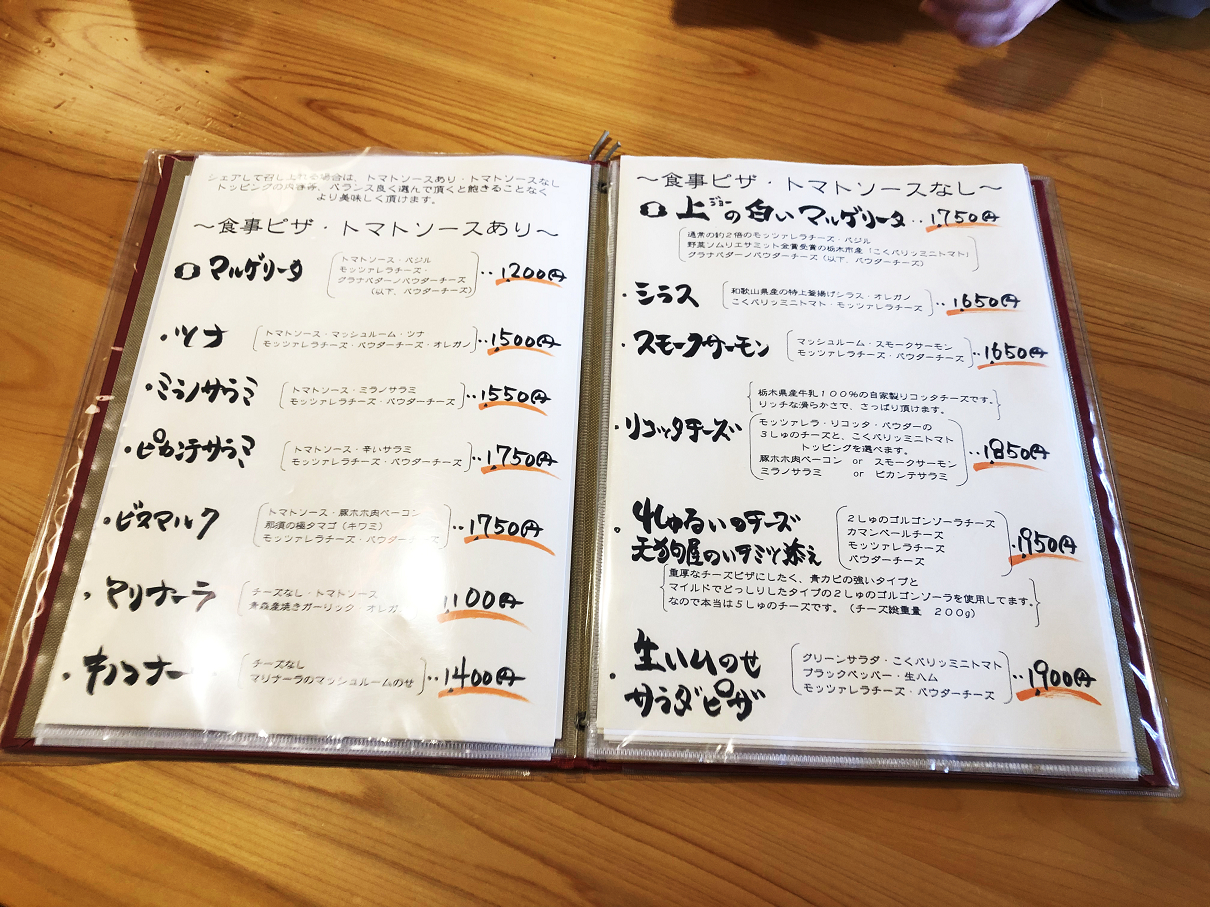 シェアして召し上がる場合は、トマトソースあり・トマトソースなし
トッピングの内容み、バランス良く選んで頂くと飽きることなく
より美味しく頂けます。
～食事ピザ・トマトソースあり～
マルゲリータ
トマトソース・バジル
モッツァレラチーズ・
グラナパダーノパウダーチーズ
(以下、パウダーチーズ)
‥1200円
・ツナ
トマトソース・マッシュルーム・ツナ
モッツァレラチーズ・パウダーチーズ・オレガノ
‥1500円
・ミラノサラミ
トマトソース・ミラノサラミ
モッツァレラチーズ・パウダーチーズ
‥1550円
・ピカンテサラミ
トマトソース・辛いサラミ
モッツァレラチーズ・パウダーチーズ
‥1750円
・ビスマルク
トマトソース・豚ホホ肉ベーコン
那須の極タマゴ(キワミ)
モッツァレラチーズ・パウダーチーズ
‥1750円
・マリナーラ
チーズなし・トマトソース
青森産焼きガーリック・オレガ
1100円
・キノコナーラ
チーズなし
マリナーラのマッシュルームのせ
‥1400円
～食事ピザ・トマトソースなし～
上の白いマルゲリータ‥1750円
ジョー
通常の約2倍のモッツァレラチーズ・バジル
野菜ソムリエサミット金賞受賞の栃木市産「こくパリッミニトマト」
グラナパダーノパウダーチーズ(以下、パウダーチーズ)
・シラス
和歌山県産の特上釜揚げシラス・オレガノ
こくパリッミニトマト・モッツァレラチーズ
‥1650円
・スモークサーモン
マッシュルーム・スモークサーモン
モッツァレラチーズ・パウダーチーズ
‥1650円
・リコッタチーズ
栃木県産牛乳100%の自家製リコッタチーズです。
リッチな滑らかさで、さっぱり頂けます。
モッツァレラ・リコッタ・パウダーの
3しゅのチーズと、こくパリッミニトマト
トッピングを選べます。
豚ホホ肉ベーコン or スモークサーモン
ミラノサラミ or ピカンテサラミ
‥1850円
。4しゅるいのチーズ
天狗屋のハチミツ添え
2しゅのゴルゴンゾーラチーズ
カマンベールチーズ
モッツァレラチーズ
パウダーチーズ
‥1950円
重厚なチーズピザにしたく、青カビの強いタイプと
マイルドでどっしりしたタイプの2しゅのゴルゴンゾーラを使用してます。
なので本当は5しゅのチーズです。(チーズ総重量 200g)
・生ハムのせ
サラダピザ
グリーンサラダ・こくパリッミニトマト
ブラックペッパー・生ハム
モッツァレラチーズ・パウダーチーズ
‥1900円